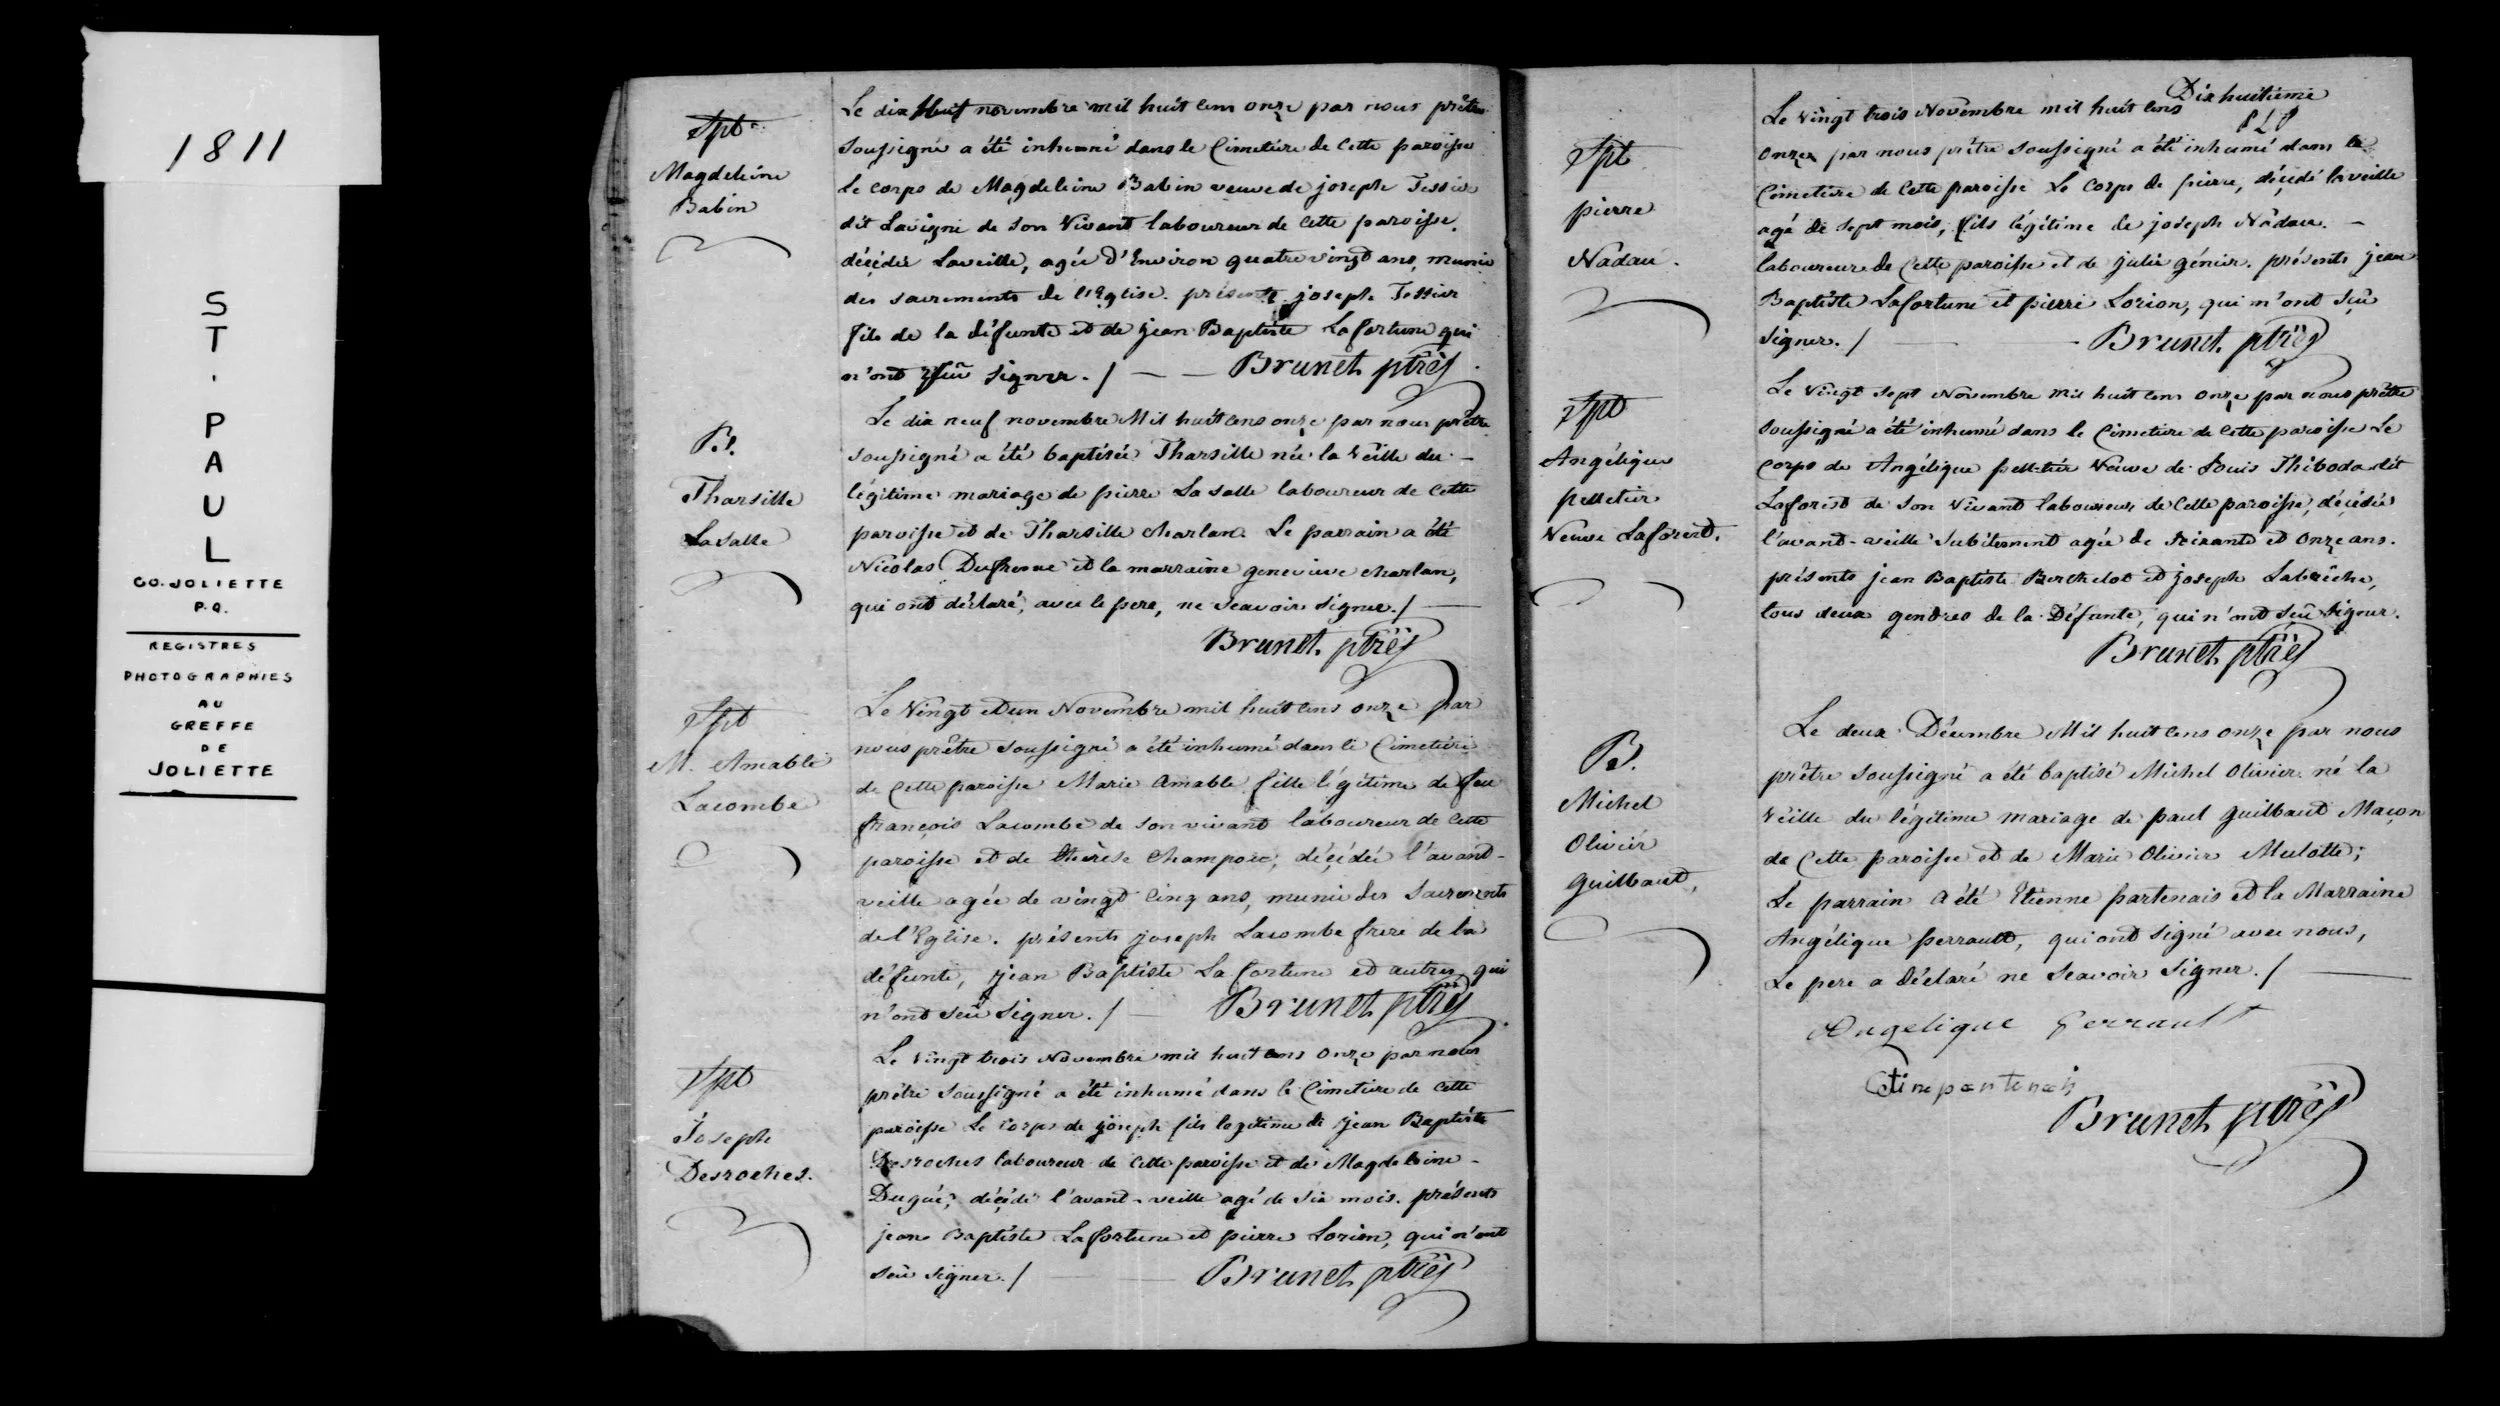 1811
ST. PAUL
CO. JOLIETTE
P.Q.
REGISTRES
PHOTOGRAPHIES
AU
GREFFE
DE
JOLIETTE
Spt
Magdeleine
Babin
Le dix huit novembre mil huit cens onze par nous prêtre
soussigné a été inhumé dans le Cimetière de cette paroisse
Le corps de Magdeleine Babin veuve de joseph Tessier
dit Lavigne de son Vivant laboureur de cette paroisse,
décédée Laveille, agée d'Environ quatre vingt ans, munie
des sacrements de l'Eglise. présents joseph Tessier
fils de la défunte et de jean Baptiste Lafortune qui
n'ont sçeû signer. /. Brunet ptre
B.
Tharsille
Lasalle
Le dix neuf novembre Mil huit cens onze par nous prêtre
soussigné a été baptisée Tharsille née la Veille du
légitime mariage de pierre La salle laboureur de cette
paroisse et de Tharsille charlan. Le parrain a été
Nicolas Dufresne et la marraine genevieve charlan,
qui ont déclaré, avec le pere, ne sçavoir signer. /.
Brunet ptre
Spt
M. Amable
Lacombe
Le Vingt et un Novembre mil huit cens onze par
nous prêtre soussigné a été inhumé dans le Cimetière
de cette paroisse Marie Amable fille légitime de feu
françois Lacombe de son vivant laboureur de cette
paroisse et de thérèse Champoux, décédée l'avant-
veille agée de vingt cinq ans, munie des sacrements
de l'Eglise. présents joseph Lacombe frere de la
défunte, jean Baptiste La fortune et autres qui
n'ont seû signer. /. Brunet ptre
Spt
Joseph
Desroches.
Le Vingt trois Novembre mil huit cens onze par nous
prêtre soussigné a été inhumé dans le Cimetière de cette
paroisse Le corps de joseph fils legitime de jean Baptiste
Desroches laboureur de cette paroisse et de Magdeleine
Dugué, décédé l'avant-veille agé de six mois. présents
jean Baptiste Lafortune et pierre Lorion, qui n'ont
seû signer. /. Brunet ptre
Dix huitieme
Spt
pierre
Nadau.
Le Vingt trois Novembre mil huit cens
onze par nous prêtre soussigné a été inhumé dans le
Cimetière de cette paroisse Le corps de pierre, décédé laveille
agé de sept mois, fils légitime de joseph Nadau.
laboureur de cette paroisse et de julie génier. présents jean
Baptiste Lafortune et pierre Lorion, qui n'ont seû
signer. /. Brunet ptre
Spt
Angélique
pelletier
Veuve Laforest.
Le Vingt sept Novembre mil huit cens onze par nous prêtre
soussigné a été inhumé dans le Cimetière de cette paroisse Le
corps de Angélique pelletier Veuve de Louis Thiboda dit
Laforest de son Vivant laboureur de cette paroisse, décédée
l'avant-veille subitement agée de soixante et onze ans.
présents jean Baptiste Berthelot et joseph Labrêche,
tous deux gendres de la Défunte, qui n'ont seû signer.
Brunet ptre
B.
Michel
Olivier
Guilbaut,
Le deux Décembre Mil huit cens onze par nous
prêtre soussigné a été baptisé Michel Olivier né la
Veille du légitime mariage de paul guilbaut Maçon
de cette paroisse et de Marie Olivier Mulotte;
Le parrain a été Etienne partenais et la Marraine
Angélique perrault, qui ont signé avec nous,
Le pere a déclaré ne sçavoir signer. /.
Angelique perrault
Brunet ptre